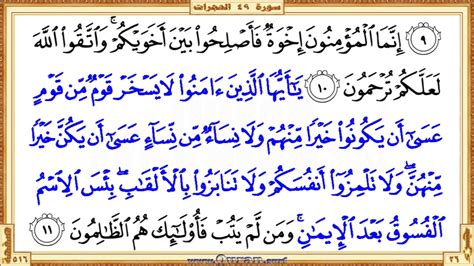 سورة ٤٩ الحجرات
٩ إِنَّمَا ٱلْمُؤْمِنُونَ إِخْوَةٌ فَأَصْلِحُوا۟ بَيْنَ أَخَوَيْكُمْ ۚ وَٱتَّقُوا۟ ٱللَّهَ
لَعَلَّكُمْ تُرْحَمُونَ ١٠ يَٰٓأَيُّهَا ٱلَّذِينَ ءَامَنُوا۟ لَا يَسْخَرْ قَوْمٌ مِّن قَوْمٍ
عَسَىٰٓ أَن يَكُونُوا۟ خَيْرًا مِّنْهُمْ وَلَا نِسَآءٌ مِّن نِّسَآءٍ عَسَىٰٓ أَن يَكُنَّ خَيْرًا
مِّنْهُنَّ ۖ وَلَا تَلْمِزُوٓا۟ أَنفُسَكُمْ وَلَا تَنَابَزُوا۟ بِٱلْأَلْقَٰبِ ۖ بِئْسَ ٱلِٱسْمُ
ٱلْفُسُوقُ بَعْدَ ٱلْإِيمَٰنِ ۚ وَمَن لَّمْ يَتُبْ فَأُو۟لَٰٓئِكَ هُمُ ٱلظَّٰلِمُونَ ١١
٢٦
٥١٦